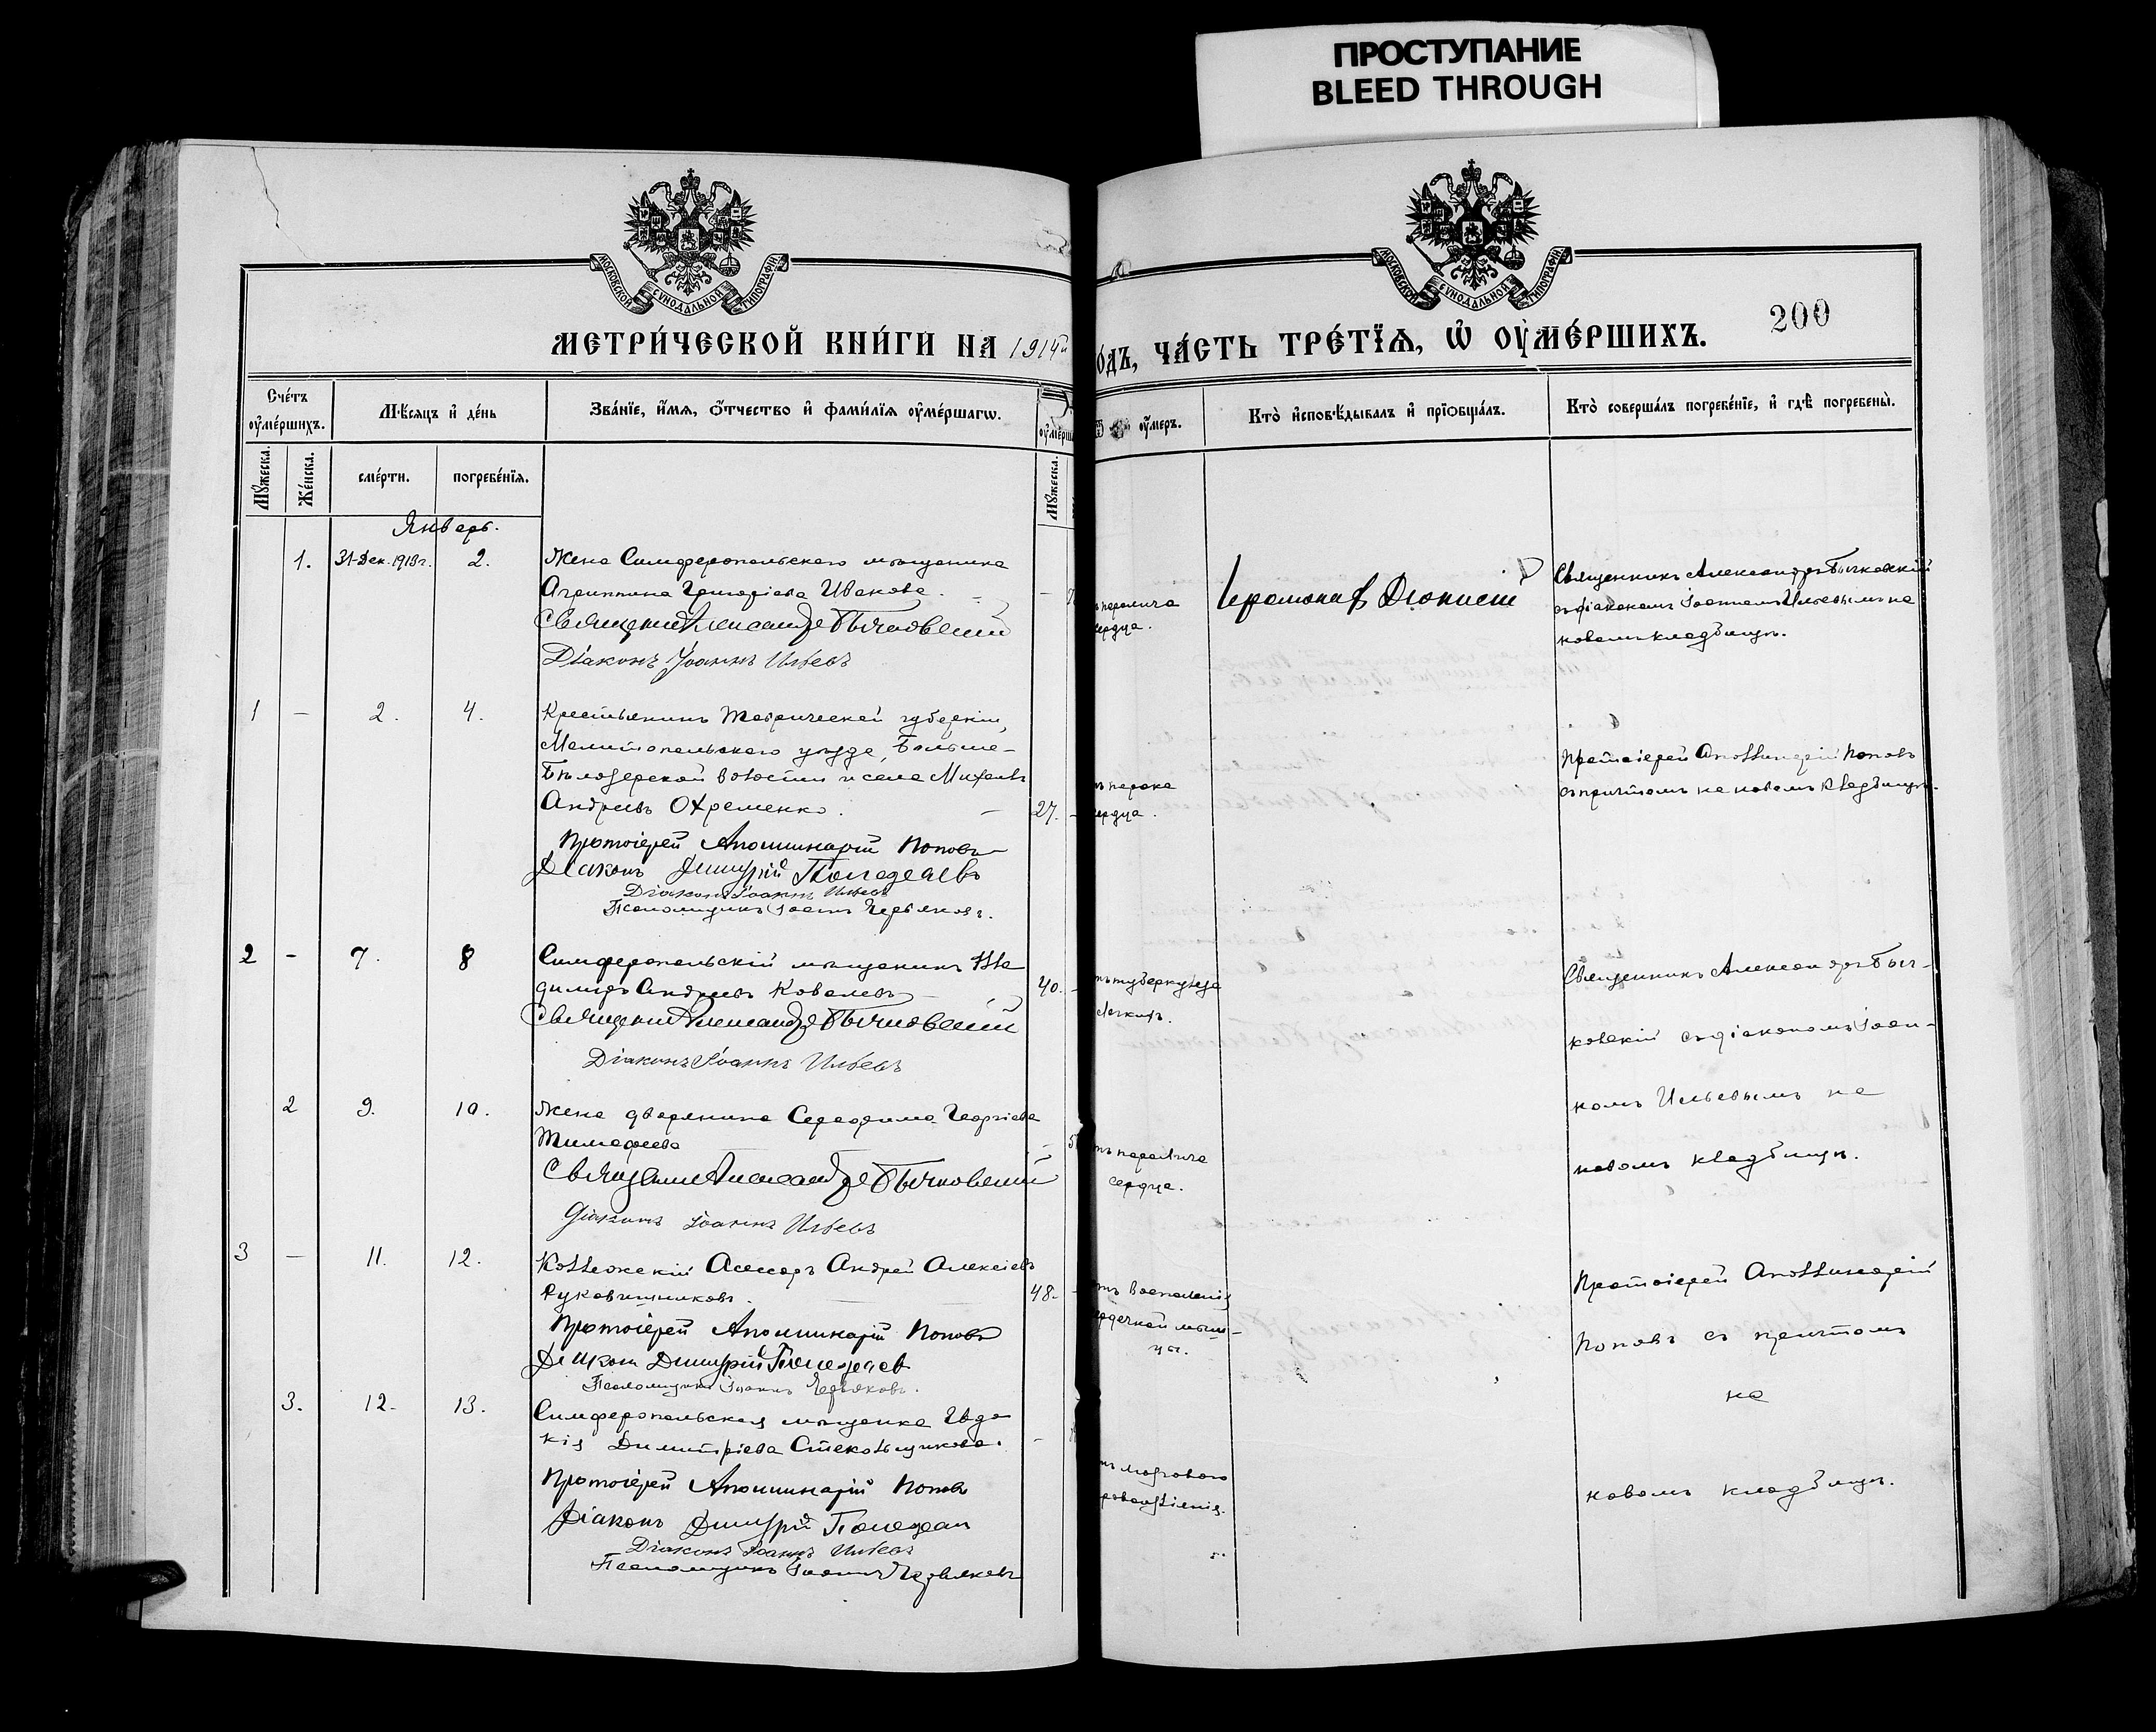 ПРОСТУПАНИЕ
BLEED THROUGH
МОСКОВСКОЙ СУНОДАЛЬНОЙ ТИПОГРАФІИ
МОСКОВСКОЙ СУНОДАЛЬНОЙ ТИПОГРАФІИ
МЕТРИ́ЧЕСКОЙ КНИ́ГИ НА 1914й
о́дъ, ЧА́СТЬ ТРЕ́ТЇѦ, Ѡ҆ ОУ҆МЕ́РШИХЪ.
200
Сче́тъ
оу҆ме́ршихъ.
Мѣ́сяцъ и҆ де́нь
Зва́нїе, и҆́мѧ, ѻ҆́тчество и҆ фами́лїѧ оу҆ме́ршагѡ.
оу҆ме́рш
оу҆́меръ.
Кто̀ и҆сповѣ́дывалъ и҆ прїѻбща́лъ.
Кто̀ соверша́лъ погребе́нїе, и҆ гдѣ̀ погребены̀.
Мꙋ́жеска.
Же́нска.
сме́рти.
погребе́нїѧ.
Мꙋ́жеска.
Январь.
1. 31-Дек. 1913 г. 2.
Жена Симферопольскаго мѣщанина
Агриппина Григоріева Ивакова. -
Священникъ Александръ Бычковскій
Діаконъ Іоаннъ Ильевъ
паралича
сердца.
Іеромонах Діонисій
Священникъ Александръ Бычковскій
съ діакономъ Іоанномъ Ильевымъ на
новомъ кладбищѣ.
1 - 2. 4.
Крестьянинъ Таврической губерніи,
Мелитопольскаго уѣзда, Больше-
Бѣлозерской волости и села Михаилъ
Андреевъ Охременко. - 27. -
Протоіерей Аполлинарій Поповъ
Діаконъ Димитрій
Діаконъ Іоаннъ Ильевъ
Псаломщикъ Іоаннъ Червяковъ.
порока
сердца.
Протоіерей Аполлинарій Поповъ
съ причтомъ на новомъ кладбищѣ.
2 - 7. 8
Симферопольскій мѣщанинъ Вла
димиръ Андреевъ Ковалевъ - 40. -
Священникъ Александръ Бычковскій
Діаконъ Іоаннъ Ильевъ
туберкулеза
легкихъ.
Священникъ Александръ Быч-
ковскій съ діакономъ Іоан-
номъ Ильевымъ на
новомъ кладбищѣ.
2 9. 10.
Жена дворянина Серафима Георгіева
Тимофеева
Священникъ Александръ Бычковскій
Діаконъ Іоаннъ Ильевъ
паралича
сердца.
3 - 11. 12.
Коллежскій Асесоръ Андрей Алексіевъ
Рукавишниковъ. - 48. -
Протоіерей Аполлинарій Поповъ
Діаконъ Димитрій
Псаломщикъ Іоаннъ Червяковъ.
воспаленія
сердечной мыш-
цы.
Протоіерей Аполлинарій
Поповъ съ причтомъ
на
новомъ кладбищѣ.
3. 12. 13.
Симферопольская мѣщанка Евдо
кія Димитріева Стекольщикова. -
Протоіерей Аполлинарій Поповъ
Діаконъ Димитрій
Діаконъ Іоаннъ Ильевъ
Псаломщикъ Іоаннъ Червяковъ
мозгового
кровоизліянія.